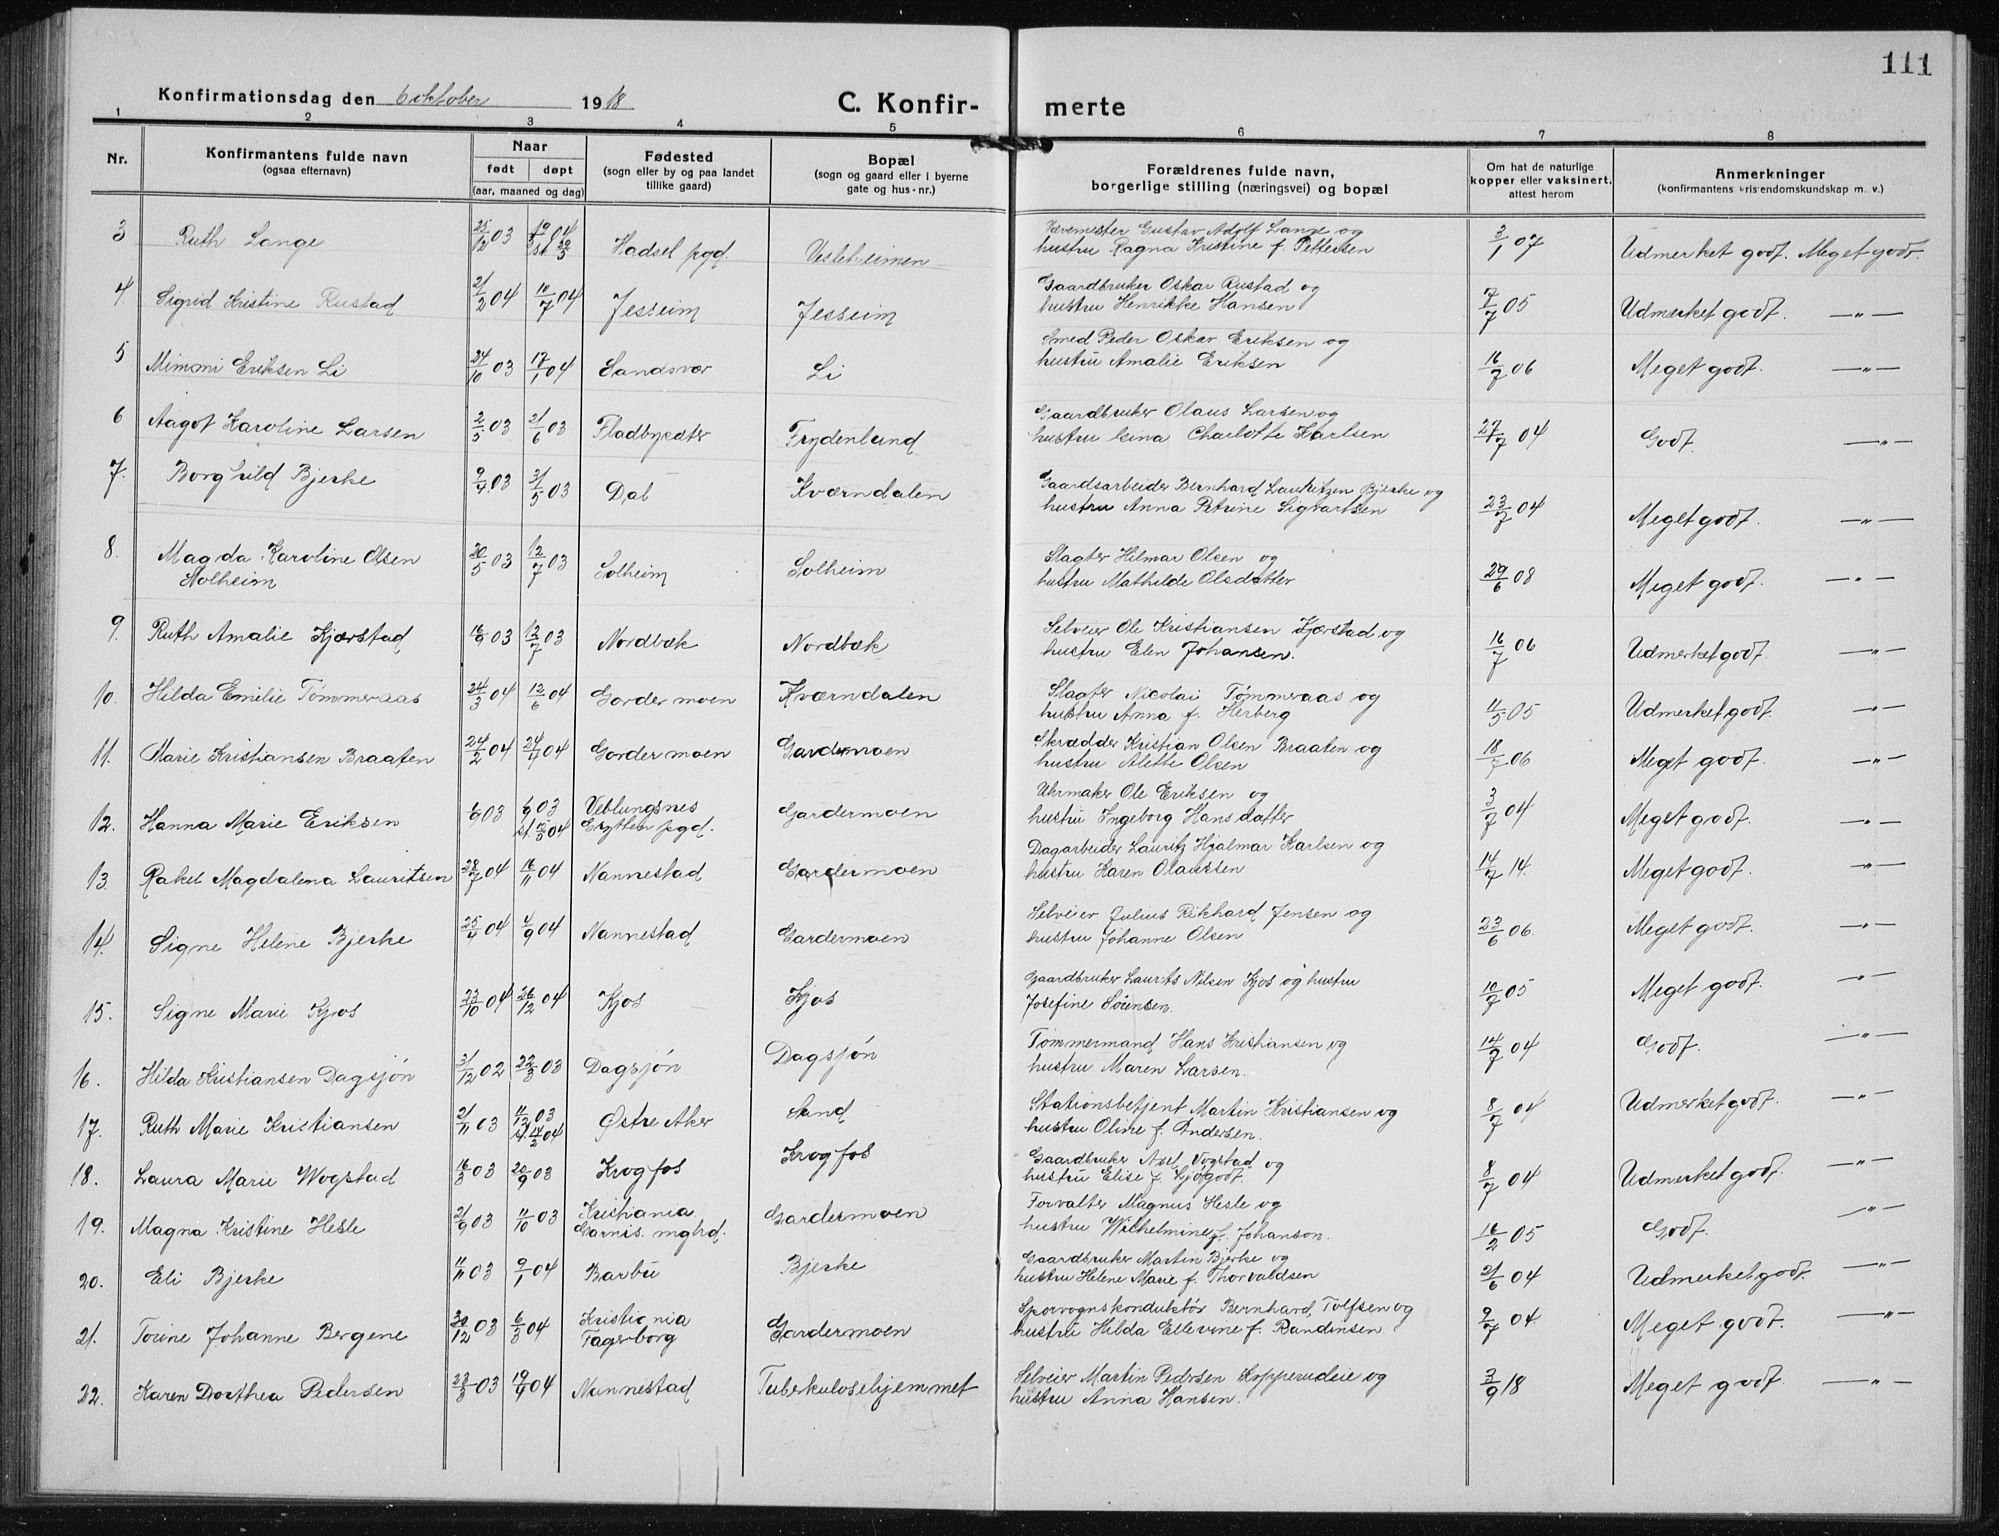 111
Konfirmationsdag den 6 oktober 1918
C. Konfir-
merte
1 2 3 4 5 6 7 8
Nr.
Konfirmantens fulde navn
(ogsaa efternavn)
Naar
født døpt
(aar, maaned og dag)
Fødested
(sogn eller by og paa landet
tillike gaard)
Bopæl
(sogn og gaard eller i byerne
gate og hus-nr.)
Forældrenes fulde navn,
borgerlige stilling (næringsvei) og bopæl
Om hat de naturlige
kopper eller vaksinert,
attest herom
Anmerkninger
(konfirmantens kristendomskundskap m. v.)
3 Ruth Lange 25/12 03 Hadsel pgd. Vesleheimen Gustav Adolf Lange og
hustru Ragna Kristine f. Pettersen 3/1 07 Udmerket godt. Meget godt.
4. Sigrid Kristine Rustad 21/2 04 10/7 04 Jesseim Jesseim Gaardbruker Oskar Rustad og
hustru Henrikke Hansen 7/7 05 Udmerket godt. —"—
5 Mimmi Eriksen Li 24/10 03 17/1 04 Sandsvær Li Smed Peder Oskar Eriksen og
hustru Amalie Eriksen 16/7 06 Meget godt. —"—
6 Aagot Karoline Larsen 2/5 03 21/6 03 Fladbyedter Frydenlund Gaardbruker Olaus Larsen og
hustru Charlotte Karlsen 27/7 04 Godt. —"—
7. Borghild Bjerke 9/4 03 31/5 03 Dal Kværndalen Gaardsarbeider Bernhard Lauritzen Bjerke og
hustru Anna Petrine Sigvartsen 23/7 04 Meget godt. —"—
8. Magda Karoline Olsen
Solheim 20/5 03 12/7 03 Solheim Solheim Slagter Hilmar Olsen og
hustru Mathilde Olsdatter 29/6 08 Meget godt. —"—
9. Ruth Amalie Kjærstad 16/9 03 12/7 03 Nordbæk Nordbæk Selveier Ole Kristiansen Kjærstad og
hustru Elen Johansen. 16/7 06 Udmerket godt. —"—
10. Hilda Emilie Tømmeraas 24/3 04 12/6 04 Gardermoen Kværndalen Slagter Nicolai Tømmeraas og
hustru Anna f. Herberg 11/5 05 Udmerket godt. —"—
11. Marie Kristiansen Braaten 24/2 04 24/4 04 Gardermoen Gardermoen Skrædder Kristian Olsen Braaten og
hustru Alette Olsen 18/7 06 Meget godt. —"—
12. Hanna Marie Eriksen 03 03 Veblungsnes
Grytten pgd. Gardermoen Uhrmaker Ole Eriksen og
hustru Ingeborg Hansdatter 3/7 04 Meget godt. —"—
13. Rakel Magdalena Lauritsen 28/7 04 16/11 04 Nannestad Gardermoen Dagarbeider Lauritz Hjalmar Karlsen og
hustru Karen Olaussen 14/7 14. Meget godt. —"—
14. Signe Helene Bjerke 25/4 04 4/9 04 Nannestad Gardermoen Selveier Julius Rikhard Jensen og
hustru Johanne Olsen 23/6 06. Meget godt. —"—
15. Signe Marie Kjos 23/10 04 26/12 04 Kjos Kjos Gaardbruker Laurits Nilsen Kjos og hustru
Josefine Sørensen. 10/7 05 Meget godt. —"—
16. Hilda Kristiansen Dagsjön 31/12 02 22/3 03 Dagsjön Dagsjön Tømmermand Hans Kristiansen og
hustru Maren Larsen. 14/7 04 Godt. —"—
17. Ruth Marie Kristiansen 21/11 03 11/12 03
st. 14/2 04 Østre Aker Sand Stationsbetjent Martin Kristiansen og
hustru Oline f. Andersen. 8/7 04 Udmerket godt. —"—
18. Laura Marie Wogstad 16/3 03 20/9 03 Krogfos Krogfos Gaardbruker Axel Vogstad og
hustru Elise f. 8/7 04 Udmerket godt. —"—
19. Magna Kristine Hesle 21/9 03 11/10 03 Kristiania
Garnis. mghd. Gardermoen Forvalter Magnus Hesle og
hustru Wilhelmine f. Johanson. 16/2 05 Godt. —"—
20. Eli Bjerke 11/11 03 9/1 04 Barbu Bjerke Gaardbruker Martin Bjerke og
hustru Helene Marie f. Thorvaldsen 21/6 04 Udmerket godt. —"—
21. Torine Johanne Bergene 30/12 03 6/3 04 Kristiania
Fagerborg Gardermoen Sporvognskonduktør Bernhard Tolfsen og
hustru Hilda Ellevine f. Randinsen 9/7 04. Meget godt. —"—
22. Karen Dorthea Pedersen 28/3 03 19/4 04 Nannestad Tuberkulosehjemmet Selveier Martin Pedersen Kopperudeie og
hustru Anna Hansen. 3/9 18 Meget godt. —"—